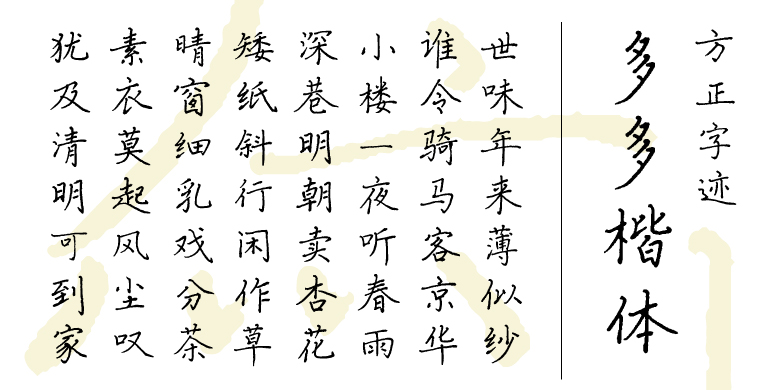 方正字迹
多多楷体
世味年来薄似纱
谁令骑马客京华
小楼一夜听春雨
深巷明朝卖杏花
矮纸斜行闲作草
晴窗细乳戏分茶
素衣莫起风尘叹
犹及清明可到家